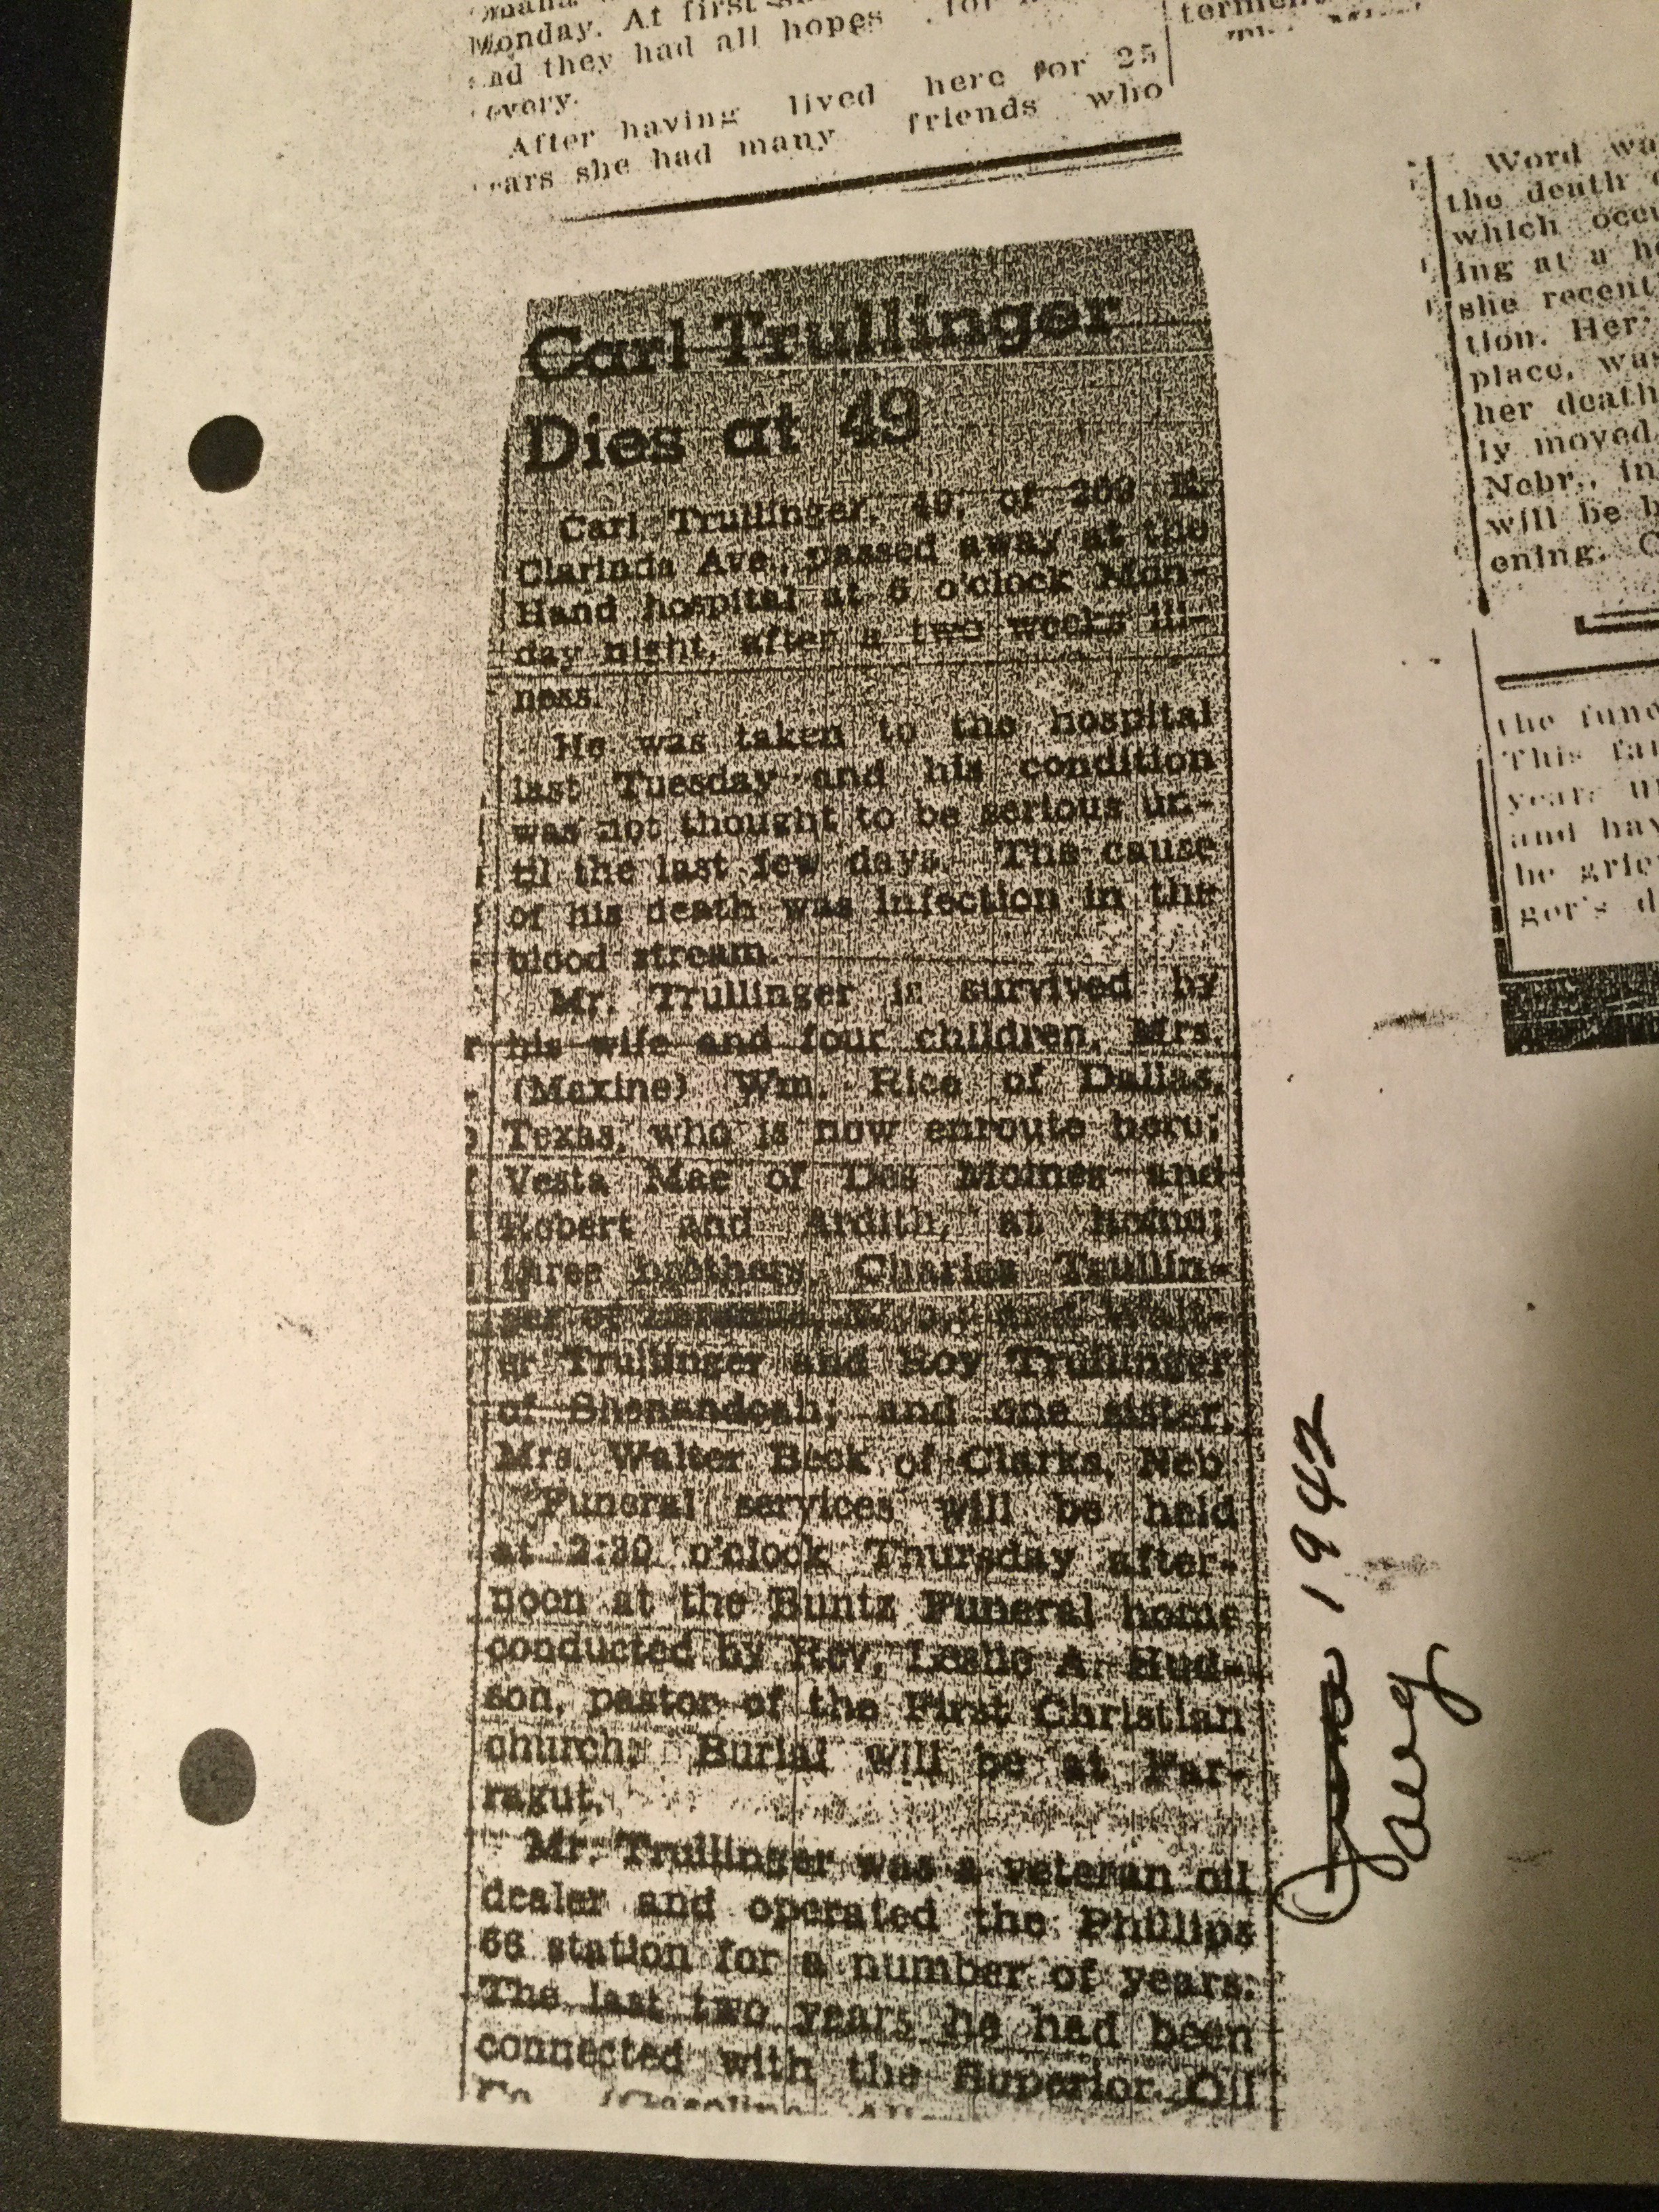 Monday. At first
and they had all hopes for
covery.
After having lived here for 25
years she had many friends who
Carl Trullinger
Dies at 49
Carl Trullinger, 49, of 309 E.
Clarinda Ave., passed away at the
Hand hospital at 6 o'clock Mon-
day night, after a two weeks ill-
ness.
He was taken to the hospital
last Tuesday and his condition
was not thought to be serious un-
til the last few days. The cause
of his death was infection in the
blood stream.
Mr. Trullinger is survived by
his wife and four children, Mrs.
(Maxine) Wm. Rice of Dallas,
Texas, who is now enroute here;
Vesta Mae of Des Moines and
Robert and Ardith, at home;
three brothers, Charles Trullin-
ger of and Walt-
er Trullinger and Roy Trullinger
of Shenandoah; and one sister,
Mrs. Walter Beck of Clarks, Neb
Funeral services will be held
at 2:30 o'clock Thursday after-
noon at the Buntz Funeral home
conducted by Rev. Leslie A. Hud-
son, pastor of the First Christian
church. Burial will be at Far-
ragut.
Mr. Trullinger was a veteran oil
dealer and operated the Phillips
66 station for a number of years.
The last two years he had been
connected with the Superior Oil
Co.
June 1942
Aug
Word wa
the death
which occu
ing at a ho
she recent
tion. Her
place, was
her death
ly moved
Nebr., in
will be b
ening. C
the fune
This fa
years
and hav
be grie
ger's d